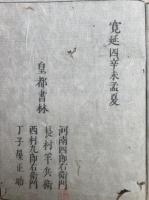 寛延四辛未孟夏
皇都書林
河南四郎右衛門
長村半兵衛
西村九郎右衛門
丁子屋正助